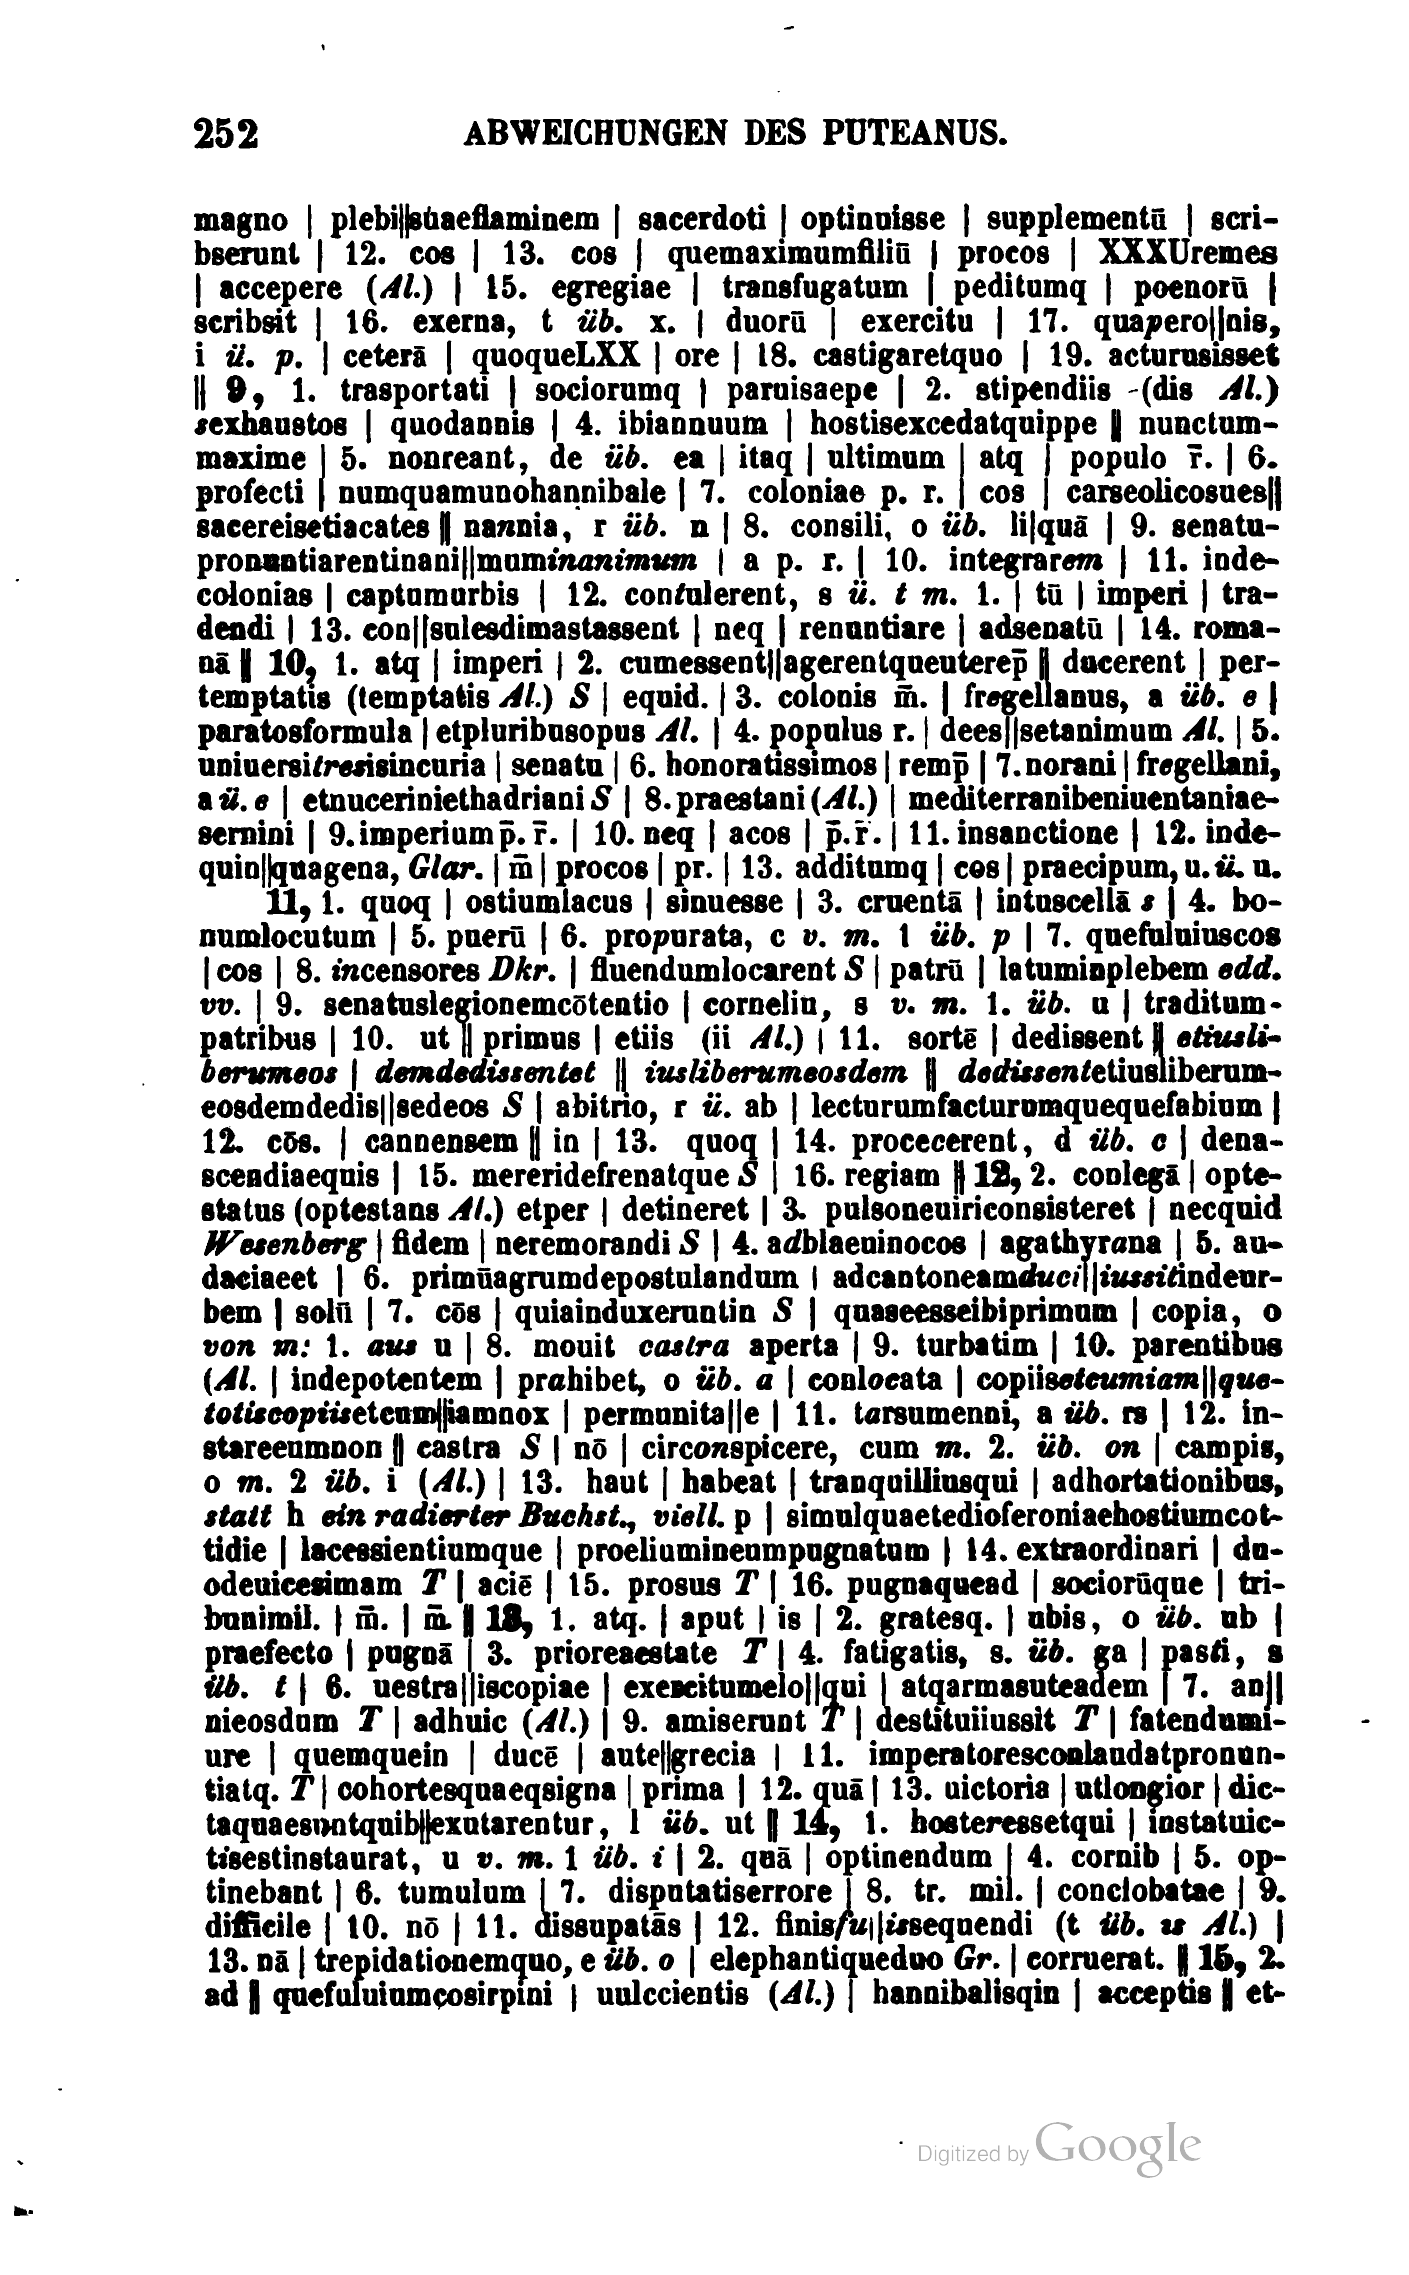 252 ABWEICHUNGEN DES PUTEANUS.
magno | plebi||suaeflaminem | sacerdoti | optinuisse | supplementū | scri-
bserunt | 12. cos | 13. cos | quemaximumfiliū | procos | XXXUremes
| accepere (Al.) | 15. egregiae | transfugatum | peditumq | poenorū |
scribsit | 16. exerna, t üb. x. | duorū | exercitu | 17. quapero||nis,
i ü. p. | ceterā | quoqueLXX | ore | 18. castigaretquo | 19. acturusisset
|| 9, 1. trasportati | sociorumq | paruisaepe | 2. stipendiis (dis Al.)
sexhaustos | quodannis | 4. ibiannuum | hostisexcedatquippe || nunctum-
maxime | 5. nonreant, de üb. ea | itaq | ultimum | atq | populo r̄. | 6.
profecti | numquamunohannibale | 7. coloniae p. r. | cos | carseolicosues||
sacereisetiacates || nannia, r üb. n | 8. consili, o üb. li|quā | 9. senatu-
pronuntiarentinani||muminanimum | a p. r. | 10. integrarem | 11. inde-
colonias | captumurbis | 12. contulerent, s ü. t m. 1. | tū | imperi | tra-
dendi | 13. con||sulesdimastassent | neq | renuntiare | adsenatū | 14. roma-
nā || 10, 1. atq | imperi | 2. cumessent||agerentqueuterep̄ || ducerent | per-
temptatis (temptatis Al.) S | equid. | 3. colonis m̄. | fregellanus, a üb. e |
paratosformula | etpluribusopus Al. | 4. populus r. | dees||setanimum Al. | 5.
uniuersitresisincuria | senatu | 6. honoratissimos | remp̄ | 7. norani | fregellani,
a ü. e | etnuceriniethadriani S | 8. praestani (Al.) | mediterranibeniuentaniae-
sernini | 9. imperium p̄. r̄. | 10. neq | acos | p̄. r̄. | 11. insanctione | 12. inde-
quin||quagena, Glar. | m̄ | procos | pr. | 13. additumq | cos | praecipum, u. ü. u.
11, 1. quoq | ostiumlacus | sinuesse | 3. cruentā | intuscellā s | 4. bo-
numlocutum | 5. puerū | 6. propurata, c v. m. 1 üb. p | 7. quefuluiuscos
| cos | 8. incensores Dkr. | fluendumlocarent S | patrū | latuminplebem edd.
vv. | 9. senatuslegionemcōtentio | corneliu, s v. m. 1. üb. u | traditum-
patribus | 10. ut || primus | etiis (ii Al.) | 11. sortē | dedissent || etiusli-
berumeos | demdedissentet || iusliberumeosdem || dedissentetiusliberum-
eosdemdedis||sedeos S | abitrio, r ü. ab | lecturumfacturumquequefabium |
12. cōs. | cannensem || in | 13. quoq | 14. procecerent, d üb. c | dena-
scendiaequis | 15. mereridefrenatque S | 16. regiam || 12, 2. conlegā | opte-
status (optestans Al.) etper | detineret | 3. pulsoneuiriconsisteret | necquid
Wesenberg | fidem | neremorandi S | 4. adblaeuinocos | agathyrana | 5. au-
daciaeet | 6. primūagrumdepostulandum | adcantoneamduci||iussitindeur-
bem | solū | 7. cōs | quiainduxeruntin S | quaseesseibiprimum | copia, o
von m: 1. aus u | 8. mouit castra aperta | 9. turbatim | 10. parentibus
(Al. | indepotentem | prahibet, o üb. a | conlocata | copiisetcumiam||que-
totiscopiisetcum||iamnox | permunita||e | 11. tarsumenni, a üb. rs | 12. in-
stareeumnon || castra S | nō | circonspicere, cum m. 2. üb. on | campis,
o m. 2 üb. i (Al.) | 13. haut | habeat | tranquilliusqui | adhortationibus,
statt h ein radierter Buchst., viell. p | simulquaetedioferoniaehostiumcot-
tidie | lacessientiumque | proeliumineumpugnatum | 14. extraordinari | du-
odeuicesimam T | aciē | 15. prosus T | 16. pugnaquead | sociorūque | tri-
bunimil. | m̄. | m̄. || 13, 1. atq. | aput | is | 2. gratesq. | ubis, o üb. ub |
praefecto | pugnā | 3. prioreaestate T | 4. fatigatis, s. üb. ga | pasti, s
üb. t | 6. uestra||iscopiae | exercitumelo||qui | atqarmasuteadem | 7. an||
nieosdum T | adhuic (Al.) | 9. amiserunt T | destituiiussit T | fatendumi-
ure | quemquein | ducē | aute||grecia | 11. imperatoresconlaudatpronun-
tiatq. T | cohortesquaeqsigna | prima | 12. quā | 13. uictoria | utlongior | dic-
taquaesuntquib||exutarentur, l üb. ut || 14, 1. hosteressetqui | instatuic-
tisestinstaurat, u v. m. 1 üb. i | 2. quā | optinendum | 4. cornib | 5. op-
tinebant | 6. tumulum | 7. disputatiserrore | 8. tr. mil. | conclobatae | 9.
difficile | 10. nō | 11. dissupatās | 12. finisfu||issequendi (t üb. us Al.) |
13. nā | trepidationemquo, e üb. o | elephantiqueduo Gr. | corruerat. || 15, 2.
ad || quefuluiumcosirpini | uulccientis (Al.) | hannibalisqin | acceptis || et-
Digitized by Google